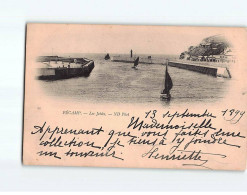 FÉCAMP. - Les Jetées. - ND Phot
13 septembre 1899
Mademoiselle
Apprenant que vous faites une
collection, je tiens à y joindre
un souvenir Henriette